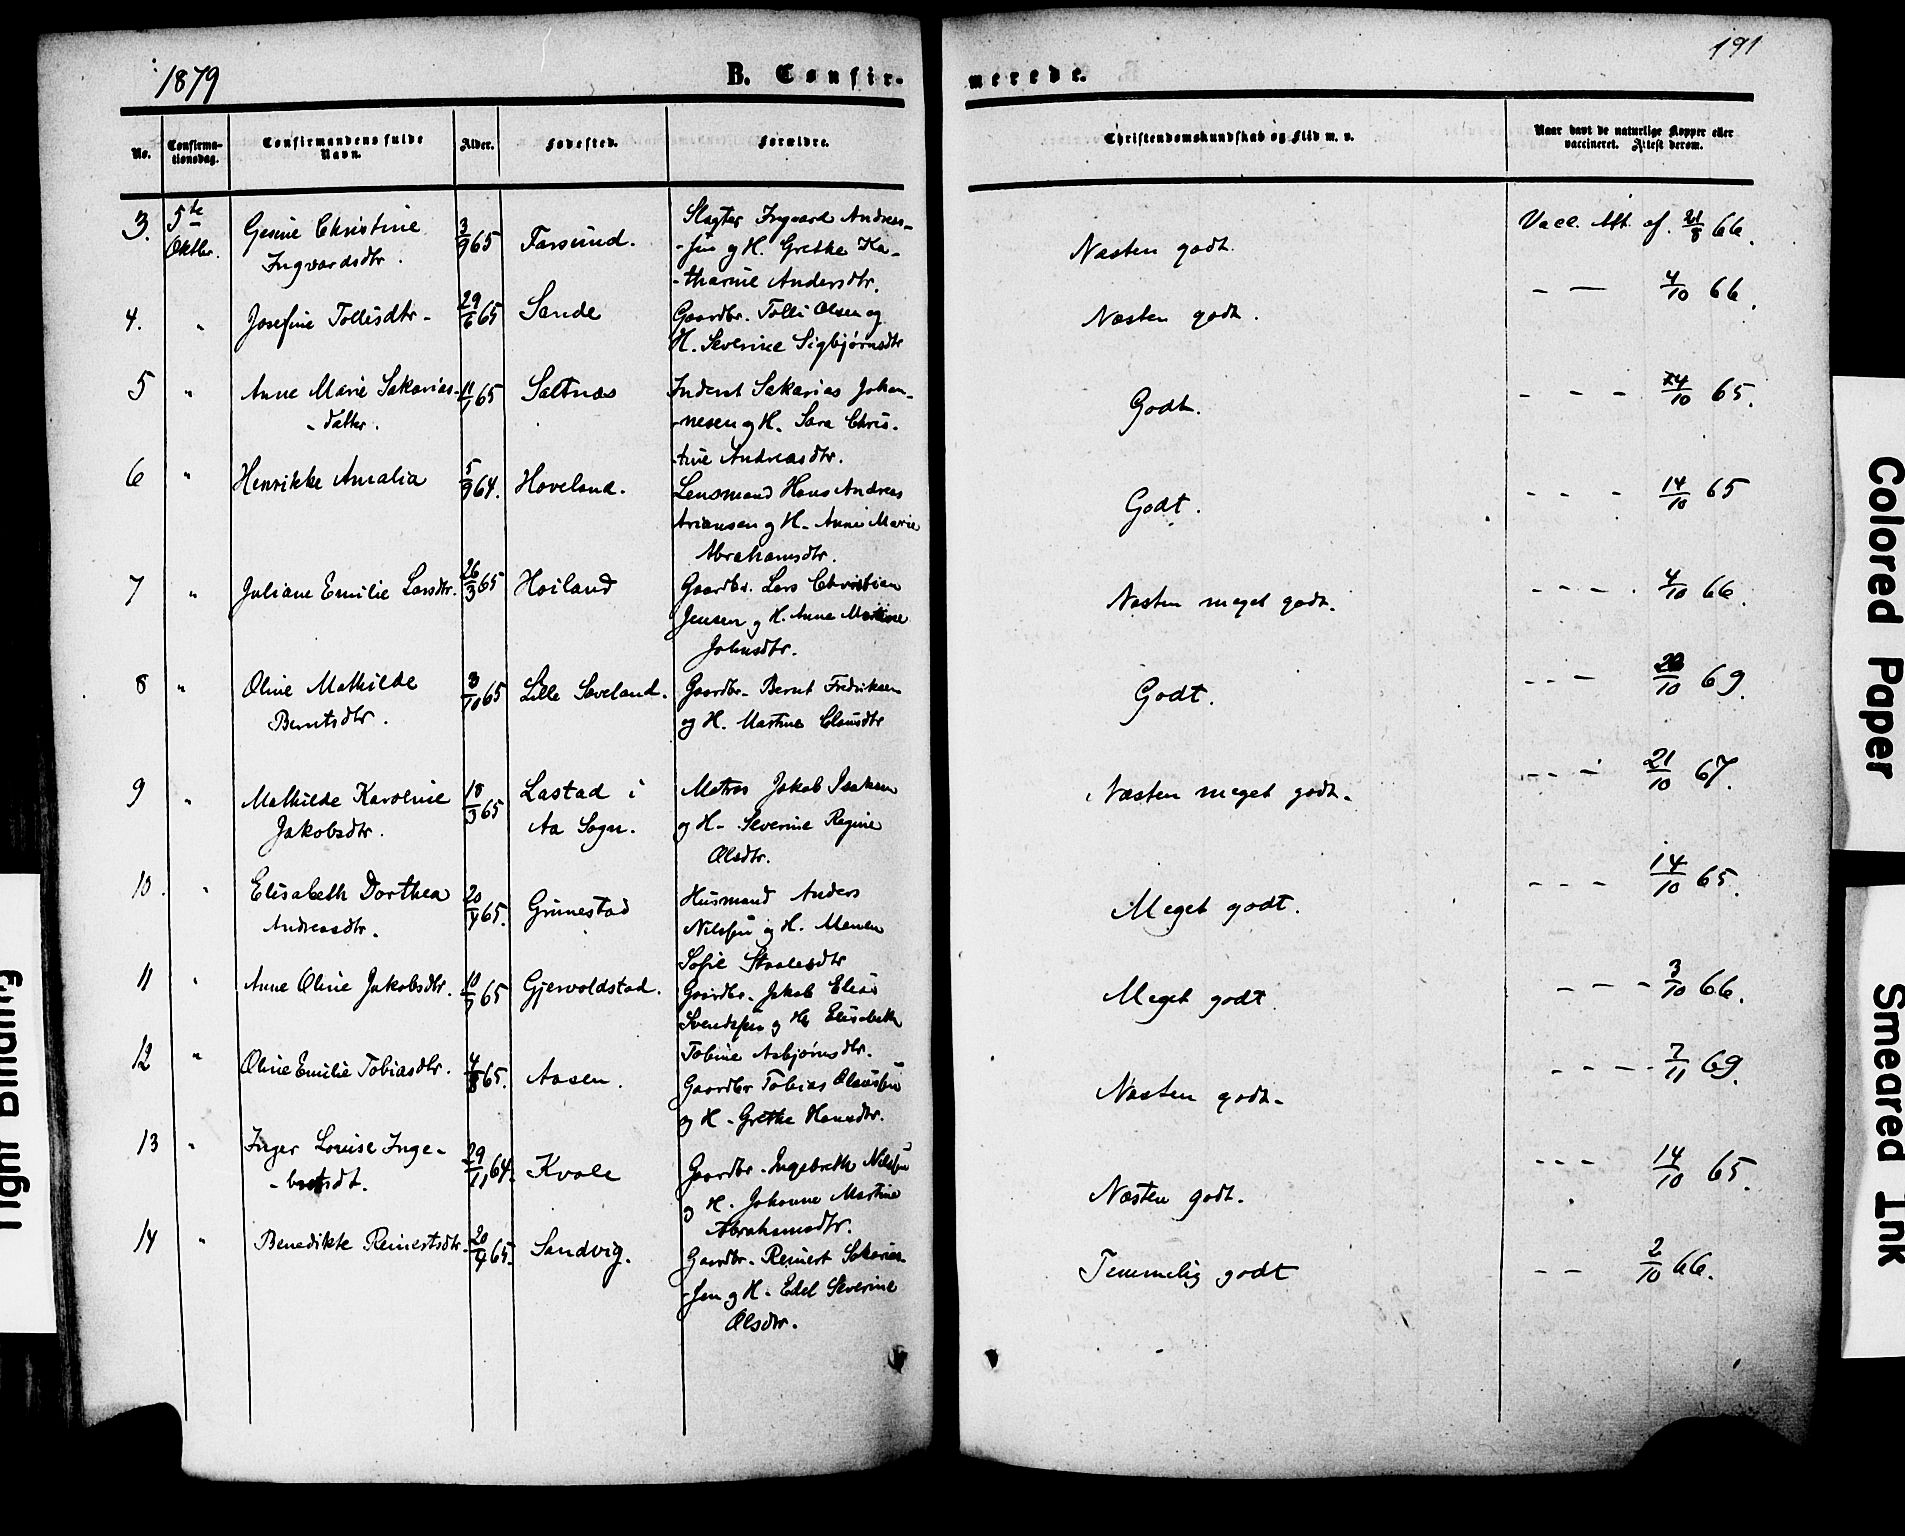 1879
B. Confir-
merede.
191
No.
Confirma-
tionsdag.
Confirmandens fulde
Navn.
Alder.
Fødested.
Forældre.
Christendomskundskab og Flid m. v.
Naar havt de naturlige Kopper eller
vaccineret. Attest derom.
3. 5te Oktbr. Gesine Christine 3/9 65 Farsund. Slagter Ingvard Andreas-
Ingvardsdtr. -sen og H. Grethe Ka-
-tharine Andersdtr.
Næsten godt. Vacc. Att. af. 21/8 66.
4. " Josefine Tollisdtr- 29/6 65 Sande Gaardbr. Tolli Olsen og
H. Severine Sigbjørnsdtr
Næsten godt. - — 4/10 66.
5 " Anne Marie Sakarias- 11/1 65 Saltnæs Inderst Sakarias Johan-
-datter. -nesen og H. Sara Chris-
-tine Andreasdtr.
Godt. - - - 14/10 65.
6 " Henrikke Amalia 5/9 64. Hoveland. Lensmand Hans Andreas
Ariansen og H. Anne Marie
Abrahamsdtr.
Godt. - - - 14/10 65
7 " Juliane Emilie Larsdtr. 26/3 65 Hoiland Gaardbr. Lars Christian
Jensen og H. Anne Martine
Johnsdtr.
Næsten meget godt. - - - . 4/10 66.
8 " Oline Mathilde 3/10 65 Lille Sæveland. Gaardbr. Bernt Fredriksen
Berntsdtr. og H. Martine Clausdtr
Godt. - - — /10 69.
9 " Mathilde Karoline 18/3 65 Lastad i Matros Jakob Isaksen
Jakobsdtr. Aa Sogn. og H. Severine Regine
Olsdtr.
Næsten meget godt. - - - 21/10 67.
10. " Elisabeth Dorthea 20/4 65. Grunestad Husmand Anders
Andreasdtr. Nilssen og H. Maren
Sofie Staalesdtr
Meget godt. - - - 14/10 65.
11 " Anne Oline Jakobsdtr. 10/7 65 Gjervoldstad. Gaardbr. Jakob Elias
Svendssen og H. Elisabeth
Tobine Asbjørnsdtr.
Meget godt - - - 3/10 66.
12 " Oline Emilie Tobiasdtr. 4/8 65. Aasen. Gaardbr Tobias Olaussen
og H. Grethe Hansdtr.
Næsten godt. - - - - 7/11 69.
13 " Inger Lovise Inge- 29/11 64. Kvole Gaardbr. Ingebreth Nilssen
-bretsdt. og H. Johanne Martine
Abrahamsdtr.
Næsten godt. - - - 14/10 65.
14 " Benedikte Reinertsdtr. 20/4 65. Sandvig. Gaardbr. Reinert Sakarias-
-sen og H. Edel Severine
Olsdtr.
Temmelig godt - - 2/10 66.
Colored Paper
Smeared Ink
Tight Binding